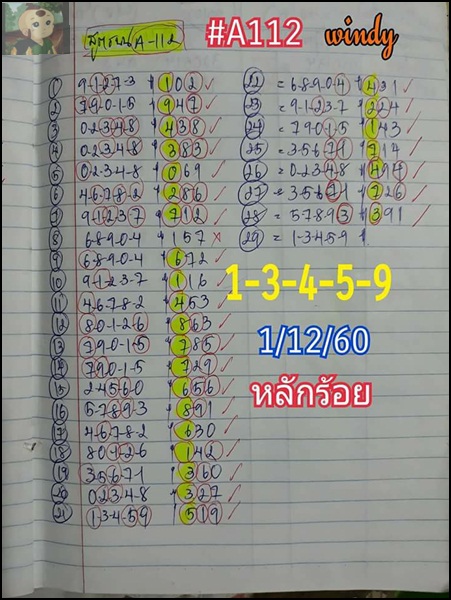 #A112 windy
สูตรบน A-112
① 9-1-2-7-3 102 ✓
② 7-9-0-1-5 947 ✓
③ 0-2-3-4-8 438 ✓
④ 0-2-3-4-8 383 ✓
⑤ 0-2-3-4-8 069 ✓
⑥ 4-6-7-8-2 286 ✓
⑦ 9-1-2-3-7 712 ✓
⑧ 6-8-9-0-4 157 ✗
⑨ 6-8-9-0-4 672 ✓
⑩ 9-1-2-3-7 116 ✓
⑪ 4-6-7-8-2 453 ✓
⑫ 8-0-1-2-6 863 ✓
⑬ 7-9-0-1-5 785 ✓
⑭ 7-9-0-1-5 729 ✓
⑮ 2-4-5-6-0 656 ✓
⑯ 5-7-8-9-3 891 ✓
⑰ 4-6-7-8-2 630 ✓
⑱ 8-0-1-2-6 142 ✓
⑲ 3-5-6-7-1 360 ✓
⑳ 0-2-3-4-8 327 ✓
㉑ 1-3-4-5-9 519 ✓
= 6-8-9-0-4 421 ✓
㉓ = 9-1-2-3-7 224 ✓
㉔ = 7-9-0-1-5 143 ✓
㉕ = 3-5-6-7-1 714 ✓
㉖ = 0-2-3-4-8 494 ✓
㉗ = 3-5-6-7-1 726 ✓
㉘ = 5-7-8-9-3 391 ✓
㉙ = 1-3-4-5-9
1-3-4-5-9
1/12/60
หลักร้อย